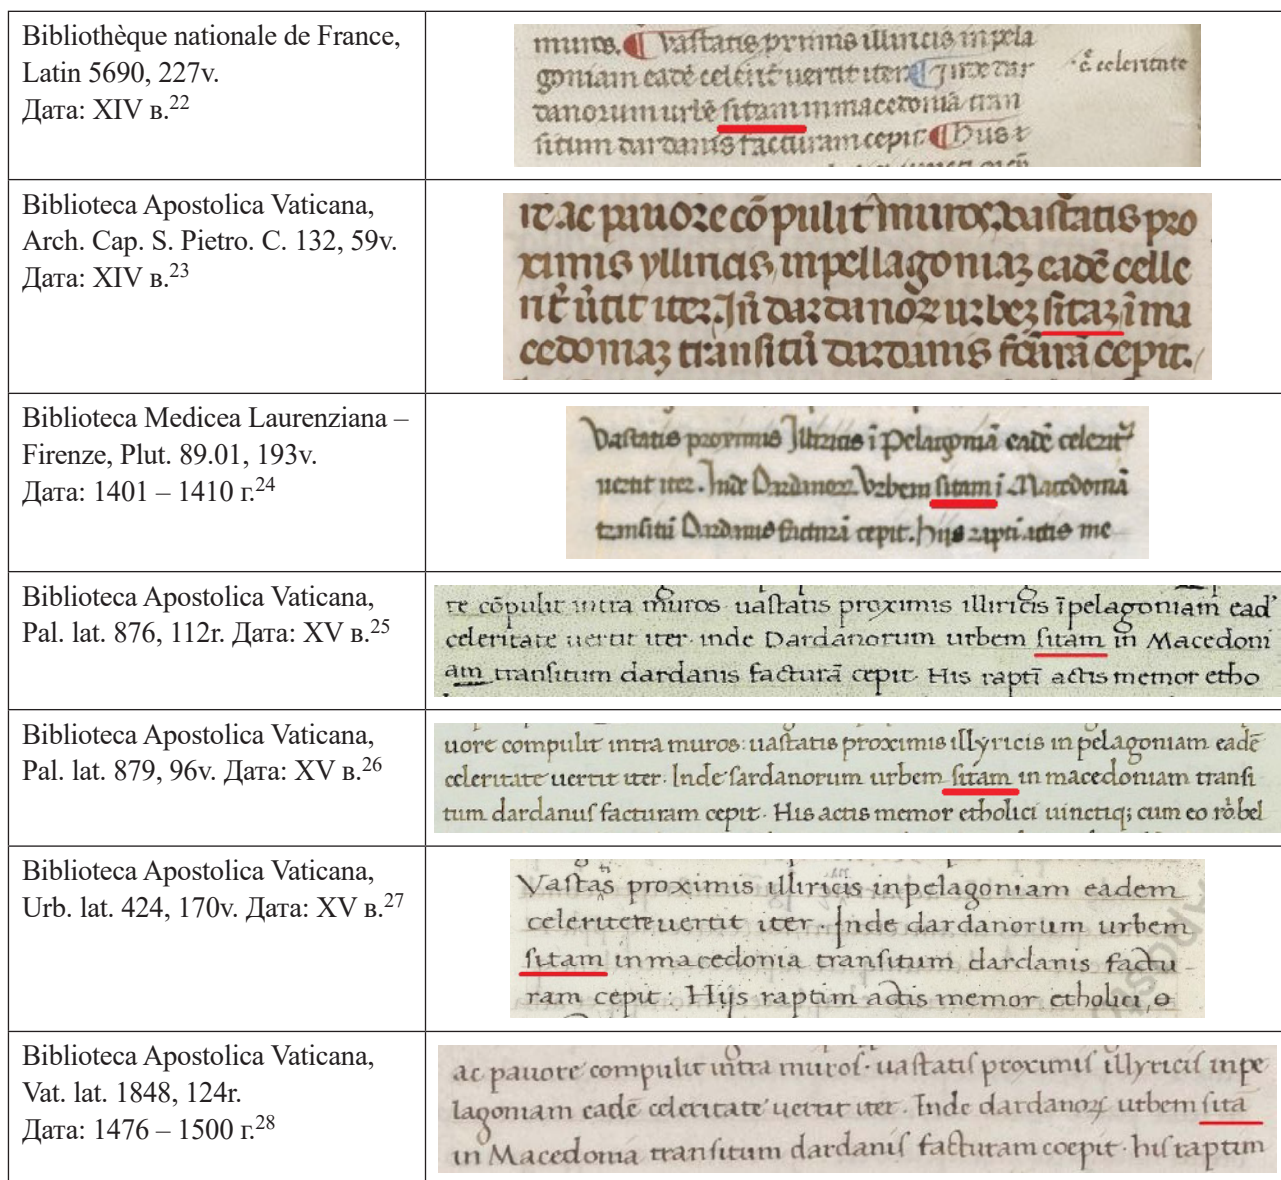 Bibliothèque nationale de France,
Latin 5690, 227v.
Дата: XIV в.22
muros. Vastatis primis illiricis in pela
goniam eadē celerit̄ uertit iter. Inde dar
danorum urbē sitam in macedoniā tran
situm dardanis facturam cepit. Hus
c̄ celeritate
Biblioteca Apostolica Vaticana,
Arch. Cap. S. Pietro. C. 132, 59v.
Дата: XIV в.23
re ac pauore cōpulit muros. uastatis pro
ximis ylliricis, in pellagoniaȝ eadē celle
rit̄ ūtit iter. In̄ dardanoꝝ urbeȝ sitaȝ ī ma
cedoniaȝ transitū dardanis fc̄urā cepit.
Biblioteca Medicea Laurenziana –
Firenze, Plut. 89.01, 193v.
Дата: 1401 – 1410 г.24
Vastatis proximis Illiricis ī Pelagoniā eadē celerit᷑
uertit iter. Inde Dardanoꝝ Vrbem sitam ī Macedoniā
transitū Dardanis facturā cepit. hiis rapti. actis me
Biblioteca Apostolica Vaticana,
Pal. lat. 876, 112r. Дата: XV в.25
re cōpulit intra muros uastatis proximis illiricis īpelagoniam ead'
celeritate uertit iter inde Dardanorum urbem sitam in Macedoni
am transitum dardanis facturā cepit. His raptī actis memor etho
Biblioteca Apostolica Vaticana,
Pal. lat. 879, 96v. Дата: XV в.26
uore compulit intra muros: uastatis proximis illyricis in pelagoniam eadē
celeritate uertit iter. Inde sardanorum urbem sitam in macedoniam transi
tum dardanus facturam cepit. His actis memor etholici uinctiq; cum eo rō. bel
Biblioteca Apostolica Vaticana,
Urb. lat. 424, 170v. Дата: XV в.27
Vastas proximis illiricis inpelagoniam eadem
celeritete uertit iter. Inde dardanorum urbem
sitam in macedonia transitum dardanis factu-
ram cepit: Hijs raptim actis memor etholici, o
Biblioteca Apostolica Vaticana,
Vat. lat. 1848, 124r.
Дата: 1476 – 1500 г.28
ac pauore compulit intra muros. uastatis proximis illyricis in pe
lagoniam eadē celeritate uertit iter. Inde dardanoꝝ urbem sita
in Macedonia transitum dardanis facturam coepit. his raptim